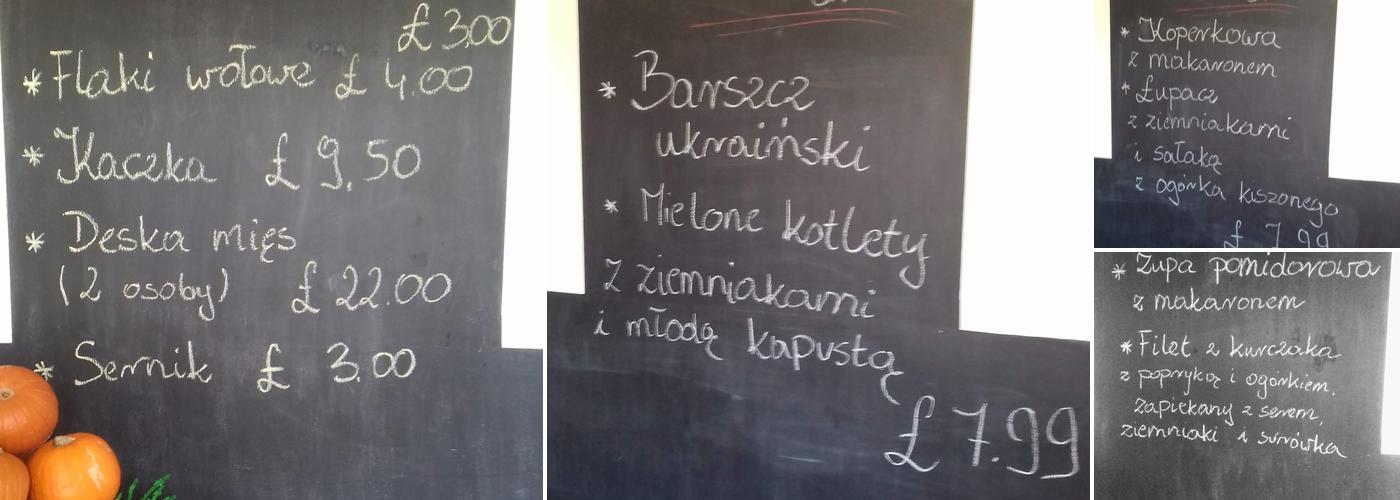 £ 3.00
* Flaki wołowe £ 4.00
* Kaczka £ 9.50
* Deska mięs
(2 osoby) £ 22.00
* Sernik £ 3.00
* Barszcz
ukraiński
* Mielone kotlety
z ziemniakami
i młodą kapustą
£ 7.99
* Koperkowa
z makaronem
* Łupacz
z ziemniakami
i sałaką
z ogórka kiszonego
£ 7.99
* Zupa pomidorowa
z makaronem
* Filet z kurczaka
z papryką i ogórkiem,
zapiekany z serem,
ziemniaki i surówka